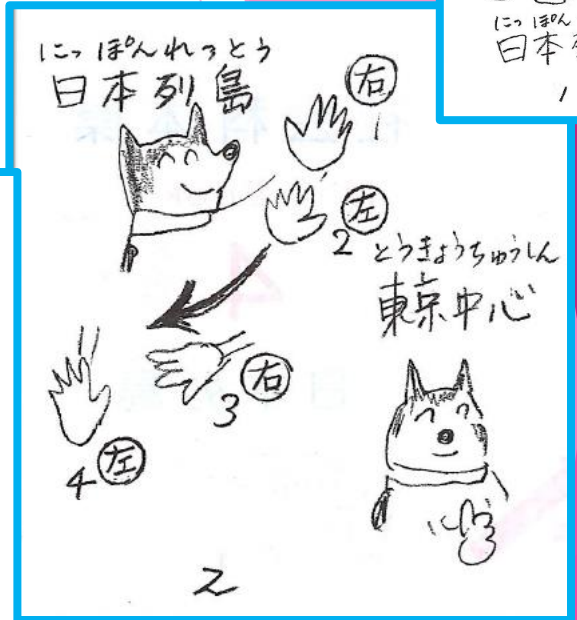 にっぽんれっとう
日本列島
右
1
左
2
とうきょうちゅうしん
東京中心
右
3
左
4
2
にっぽん
日本
1